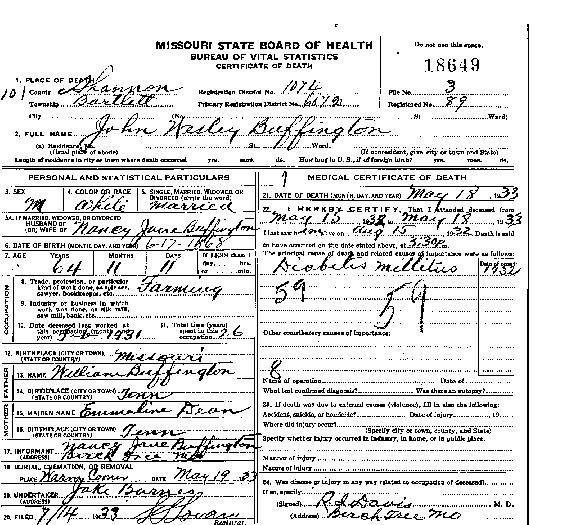 MISSOURI STATE BOARD OF HEALTH
BUREAU OF VITAL STATISTICS
CERTIFICATE OF DEATH
Do not use this space.
18649
1. PLACE OF DEATH
County Shannon Registration District No. 1074 File No. 3
Township Bartlett Primary Registration District No. Registered No. 89
City (No. St. Ward)
2. FULL NAME John Wesley Buffington
(a) Residence, No. St. Ward.
(Usual place of abode) (If nonresident, give city or town and State)
Length of residence in city or town where death occurred yrs. mos. ds. How long in U. S., if of foreign birth? yrs. mos. ds.
PERSONAL AND STATISTICAL PARTICULARS
3. SEX M
4. COLOR OR RACE White
5. SINGLE, MARRIED, WIDOWED, OR DIVORCED (write the word) Married
5A. IF MARRIED, WIDOWED, OR DIVORCED
HUSBAND OF
(OR) WIFE OF Nancy Jane Buffington
6. DATE OF BIRTH (MONTH, DAY, AND YEAR) 6-17-1868
7. AGE YEARS MONTHS DAYS If LESS than 1 day, hrs. or min.
64 11 11
OCCUPATION
8. Trade, profession, or particular kind of work done, as spinner, sawyer, bookkeeper, etc. Farming
9. Industry or business in which work was done, as silk mill, saw mill, bank, etc.
10. Date deceased last worked at this occupation (month and year) 1931
11. Total time (years) spent in this occupation 26
12. BIRTHPLACE (CITY OR TOWN) Missouri
(STATE OR COUNTRY)
FATHER
13. NAME William Buffington
14. BIRTHPLACE (CITY OR TOWN) Tenn
(STATE OR COUNTRY)
MOTHER
15. MAIDEN NAME Emmaline Dean
16. BIRTHPLACE (CITY OR TOWN) Tenn
(STATE OR COUNTRY)
17. INFORMANT Nancy Jane Buffington
(ADDRESS) Birch Tree Mo
18. BURIAL, CREMATION, OR REMOVAL
PLACE DATE May 19 33
19. UNDERTAKER Jake Burnes
(ADDRESS)
20. FILED 7/14 1933
REGISTRAR
MEDICAL CERTIFICATE OF DEATH
21. DATE OF DEATH (MONTH, DAY, AND YEAR) May 18, 1933
22. I HEREBY CERTIFY, That I attended deceased from
May 15, 1932, May 18, 1933
I last saw alive on Aug 15, 1932 Death is said
to have occurred on the date stated above, at 3:30 p.m.
The principal cause of death and related causes of importance were as follows:
Date of onset
Diabetis Mellitus 1932
59 59
Other contributory causes of importance:
8
Name of operation Date of
What test confirmed diagnosis? Was there an autopsy?
23. If death was due to external causes (violence), fill in also the following:
Accident, suicide, or homicide? Date of injury 19
Where did injury occur?
(Specify city or town, county, and State)
Specify whether injury occurred in industry, in home, or in public place.
Manner of injury
Nature of injury
24. Was disease or injury in any way related to occupation of deceased?
If so, specify
(Signed) R. S. Davis M. D.
(Address) Birch Tree Mo